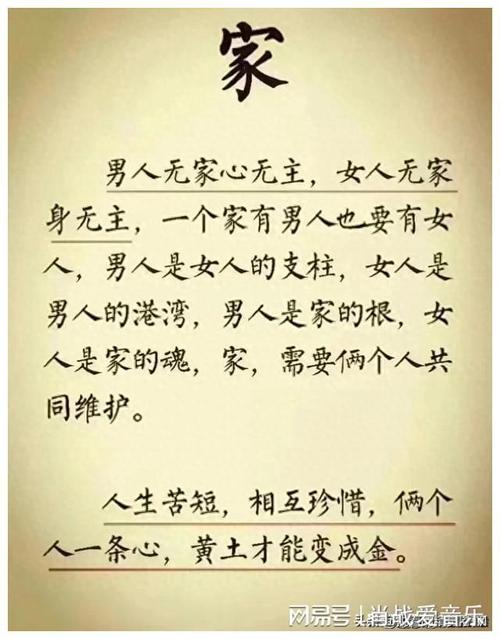 家
男人无家心无主，女人无家
身无主，一个家有男人也要有女
人，男人是女人的支柱，女人是
男人的港湾，男人是家的根，女
人是家的魂，家，需要俩个人共
同维护。
人生苦短，相互珍惜，俩个
人一条心，黄土才能变成金。
网易号|肖战爱音乐